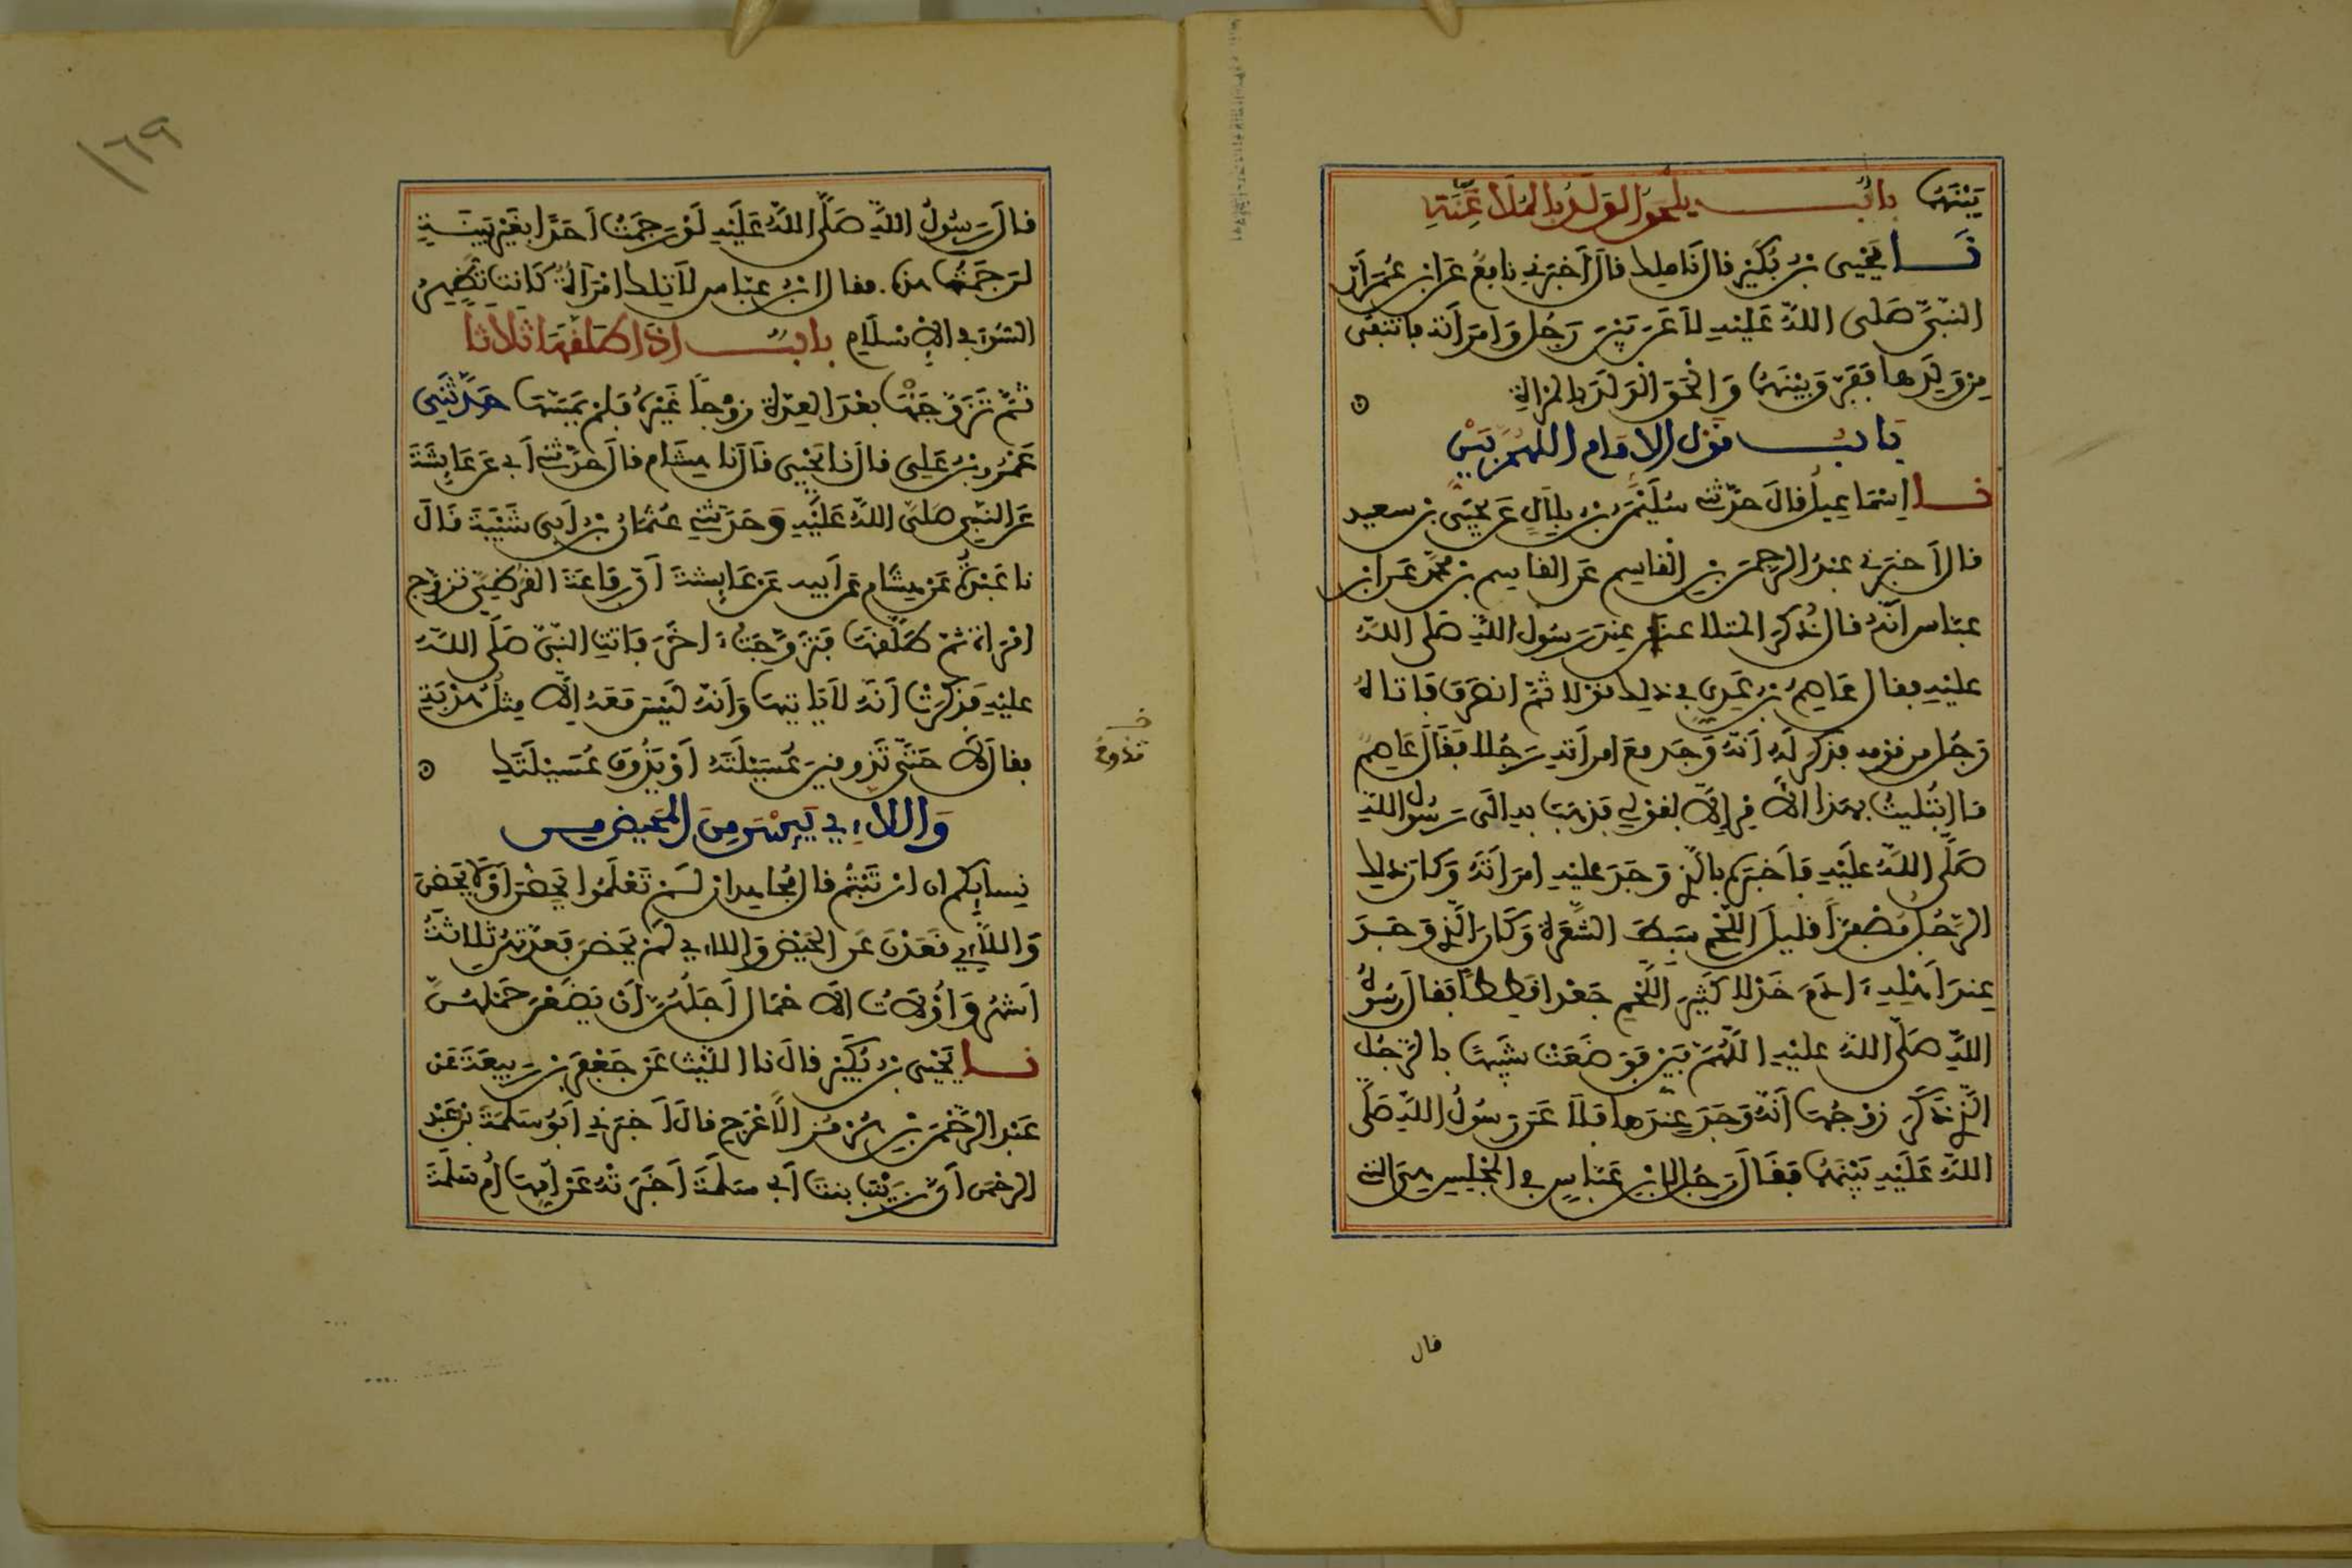 بَيْنَهُمَا بابٌ يلحق الولد بالمُلَاعِنَةِ
نا يَحْيَى بن بُكَيْرٍ قال نَا ملِك قال أخبرني نافعٌ عَن ابن عُمَرَ أنّ
النبيَّ صَلى اللهُ عَلَيْهِ لَاعَنَ بَيْنَ رَجُلٍ وَامرأته فانتفى
مِن وَلَدِها فَفَرّق بَيْنَهُمَا وَألْحَقَ الْوَلَدَ بالمرأةِ
بابُ قول الامام اللهمّ بَيِّنْ
نا إسْمَاعِيلُ قالَ حدّثني سُلَيْمَن بن بِلَالٍ عَن يَحْيَى بن سعيد
قال أخبَرني عبدُ الرحمن بن القاسِم عَن القاسِم بن محمّد عَن ابن
عباس أنّه قال ذُكِرَ المتلاعنان عِندَ رَسُول اللهِ صَلى اللهُ
عليْهِ فقال عَاصِمُ بن عَدِيٍّ في ذلك قولا ثمّ انصَرَفَ فَأتاهُ
رَجُل من قومه فذكر لَهُ أنّهُ وَجَد مَعَ امرأتهِ رَجُلا فَقَالَ عَاصِمٌ
مَا ابْتُلِيتُ بهَذا الأمْرِ إلّا لِقَوْلي فَذهَبَ به إلَى رَسُول اللهِ
صَلَّى اللهُ عَلَيْهِ فأخبَرَه بالّذي وَجَدَ عليْهِ امرَأَتَهُ وَكان ذلك
الرّجُلُ مُصْفَرّاً قليلَ اللّحْمِ سَبطَ الشَّعَرَةِ وَكَانَ الّذي وَجَدَ
عِندَ أهْلِهِ ءَادَمَ خَدْلا كَثيرَ اللّحْمِ جَعْدا قَطِطاً فقال رَسُولُ
اللهِ صَلّى اللهُ عليْهِ اللَّهُمّ بَيّنْ فَوَضَعَتْ شَبيهًا بالرّجُلِ
الّذي ذَكَرَ زَوْجُهَا أنّهُ وَجَدَ عِندَها فَلَاعَنَ رَسُولُ اللهِ صَلَّى
اللهُ عَلَيْهِ بَيْنَهُمَا فَقَالَ رَجُل لابْنِ عَبّاسٍ في المجْلِسِ هِيَ التي
قال
١٦٩
قالَ رَسُولُ اللهِ صَلَّى اللهُ عَلَيْهِ لَوْ رَجَمْتُ أحَدًا بغَيْرِ بَيِّنَةٍ
لرَجَمْتُ هذه. فقال ابْنُ عبّاس لَا تِلك امْرَأةٌ كَانت تُظهِرُ
السُّوءَ في الإسْلَامِ بابٌ إذا طلّقهَا ثلاثاً
ثُمّ تَزَوَّجَتْ بعْدَ العِدّةِ زوْجاً غَيْرَهُ فَلمْ يَمَسّهَا حَدَّثَنِي
عَمْرُو بْنُ عَلِي قالَ نا يَحْيَى قَالَ نا هِشَام قالَ حَدّثني أبي عَن عَائِشَةَ
عَن النّبيِّ صَلَّى اللهُ عَلَيْهِ وَحَدّثني عُثْمَانُ بْنُ أبي شَيْبَةَ قَالَ
نا عَبْدَةُ عَنْ هِشَام عَن أبيه عَنْ عَائِشَةَ أنّ رِفَاعَةَ القُرَظِيَّ تَزَوَّج
امْرَأة ثمّ طَلّقهَا فَتَزَوَّجَتْ ءَاخَرَ فَأتَتِ النّبيَّ صَلَّى اللهُ
عليْهِ فَذَكَرَتْ أنّهُ لَا يَأتِيهَا وَأنّهُ لَيْسَ مَعَهُ إلّا مِثْلُ هُدْبَةٍ
فقالَ لَا حَتَّى تَذُوقِينَ عُسَيْلَتَهُ أوْ يَذُوقَ عُسَيْلَتَكِ
خ
تذوقي
وَاللاءِي يَئِسْنَ مِنَ المَحِيضِ مِن
نِسَائِكم إن ارْتَبْتُمْ قال مُجَاهِد إن لَمْ تَعْلَمُوا يَحِضْنَ أوْ لَا يَحِضْنَ
وَاللّاءِي قَعَدْنَ عَن الحَيْضِ وَاللاءِي لَمْ يَحِضْنَ فَعِدّتهُنّ ثلاثَةُ
أشْهُرٍ وَأُوْلَاتُ الَاحْمَالِ أجَلُهُنّ أن يَضَعْنَ حَمْلهُنّ
نا يَحْيَى بْنُ بُكَيْرٍ قالَ نا اللَّيْث عَن جَعْفَرِ بْنِ رَبِيعَةَ عَنْ
عَبْدِ الرّحْمَنِ بْنِ هُرْمُزَ الأعْرَجِ قالَ أخْبَرَني أبُو سَلَمَةَ بْنُ عَبْدِ
الرحْمن أنّ زَيْنَبَ بنتَ أبي سَلَمَةَ أخْبَرَتْهُ عَنْ أُمِّهَا أُمِّ سَلَمَةَ